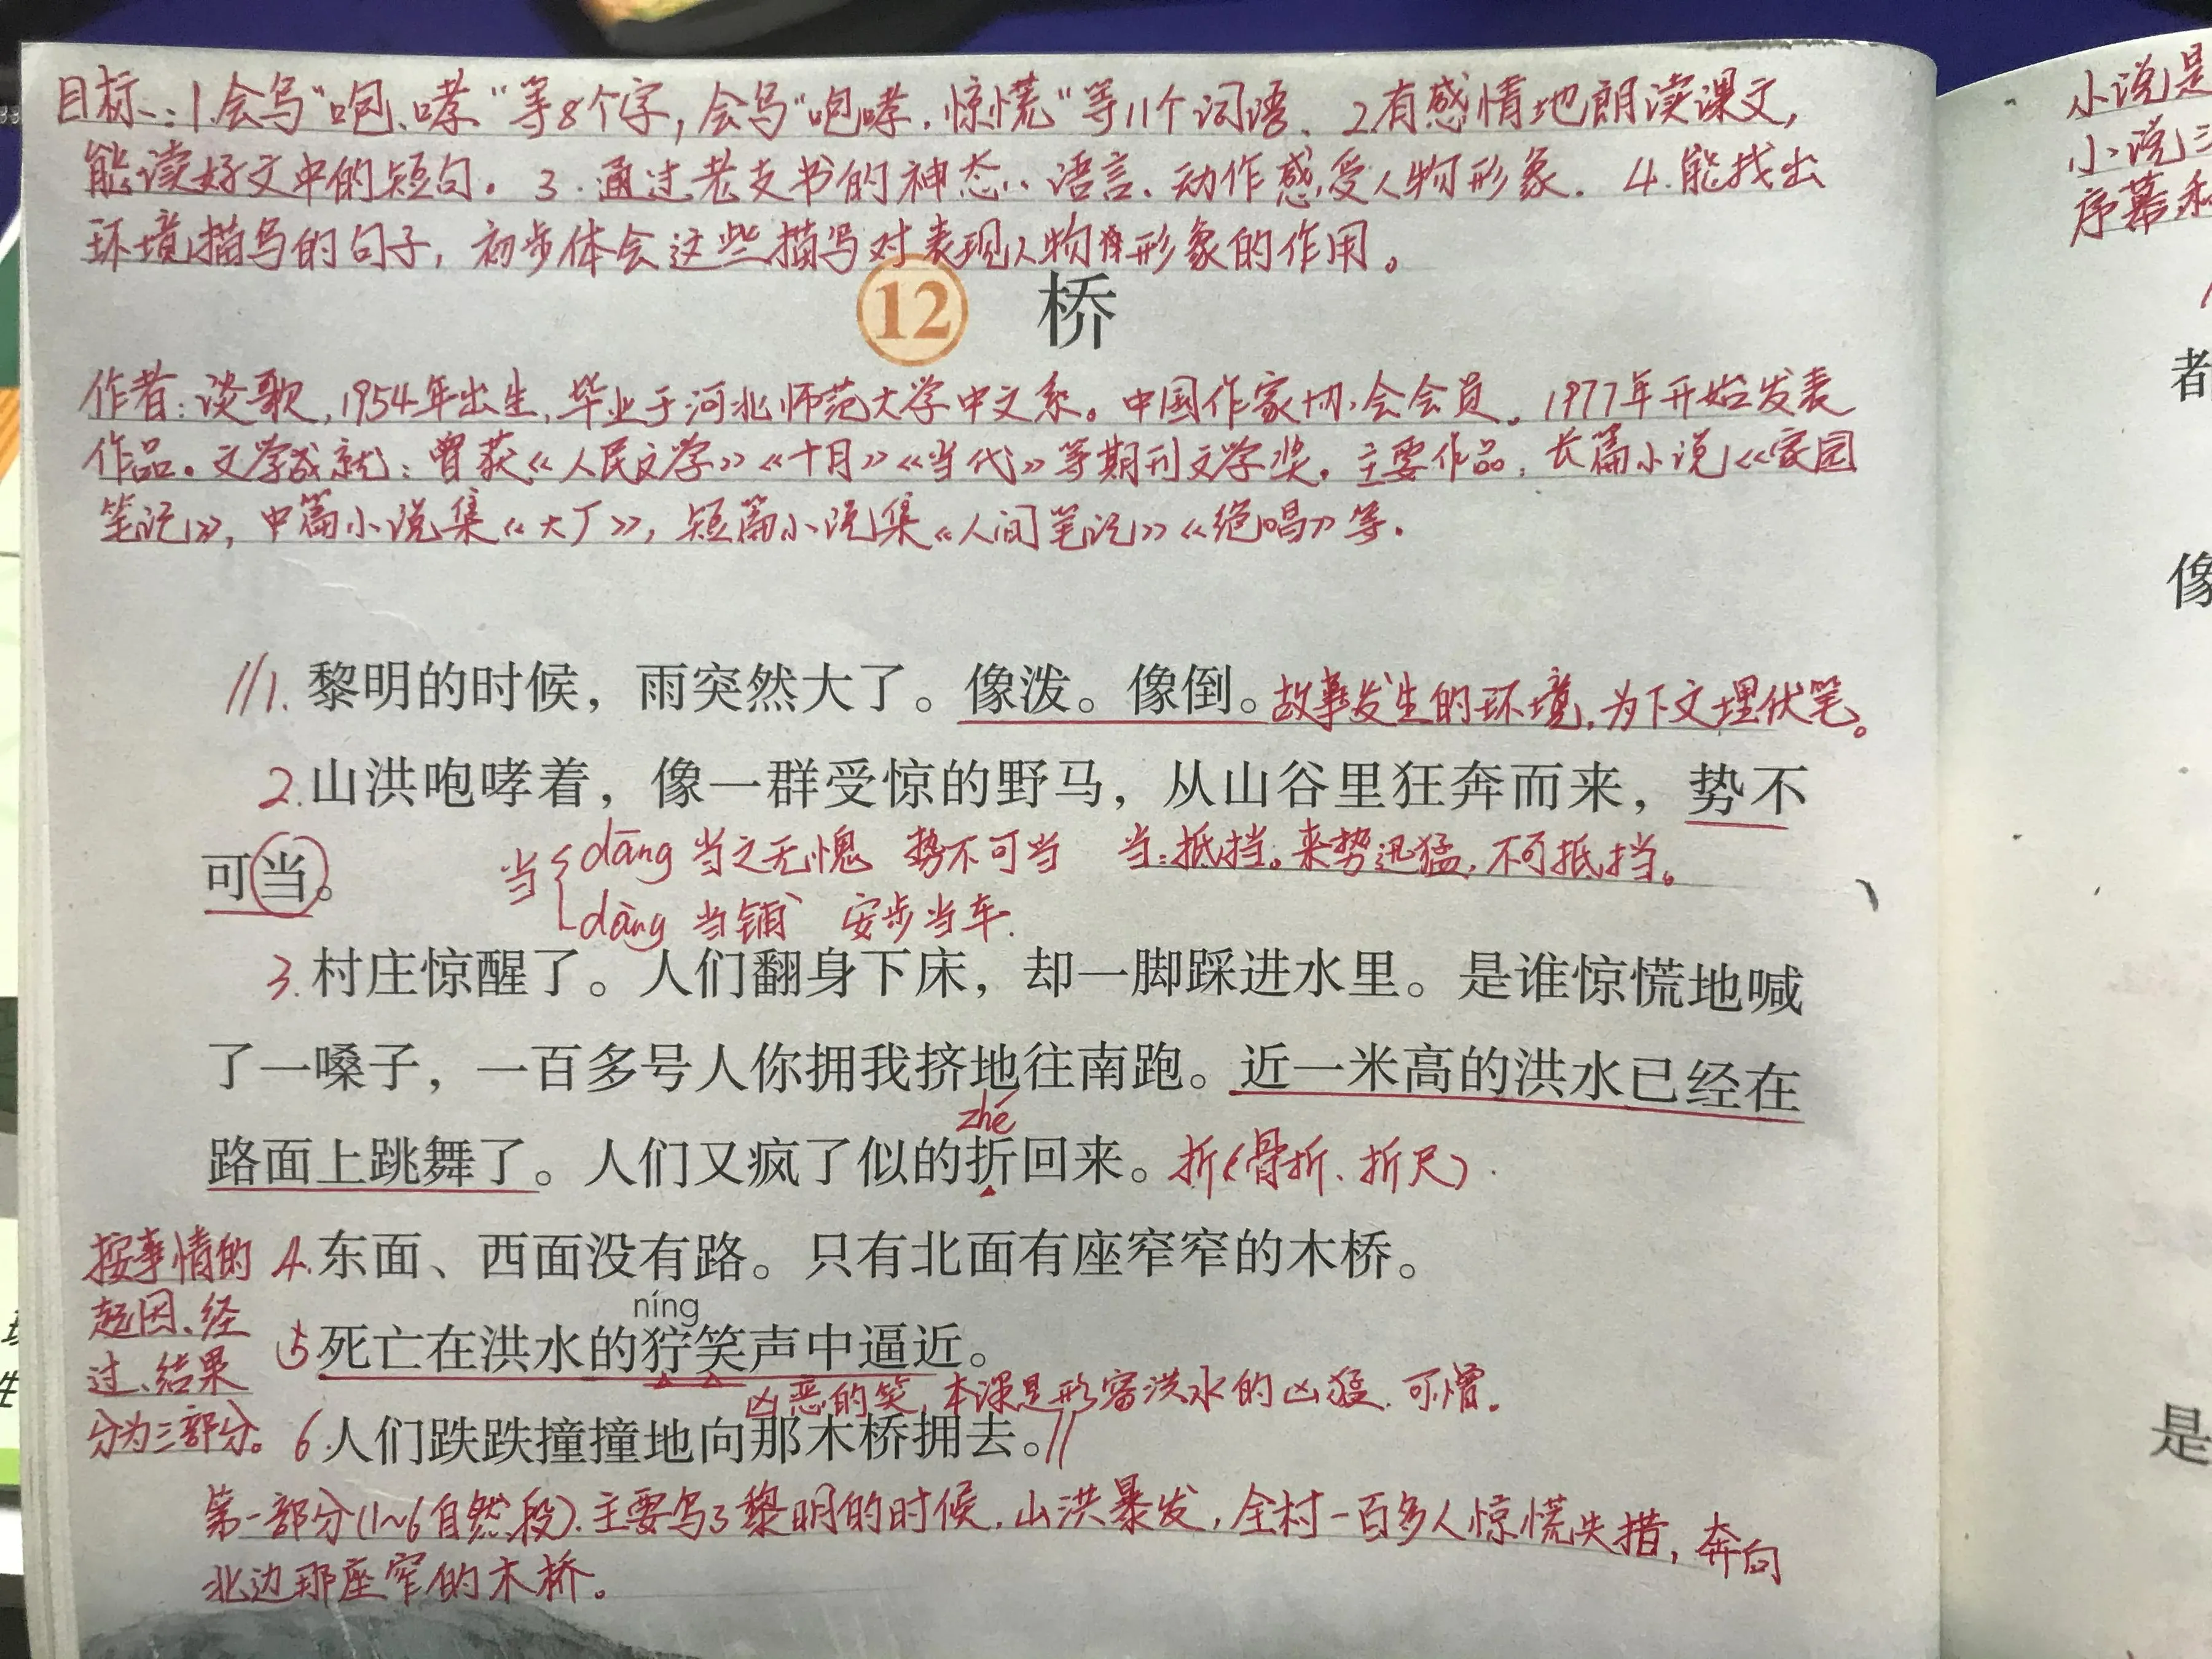 目标：1.会写“咆、哮”等8个字，会写“咆哮．惊慌”等11个词语、2.有感情地朗读课文，
能读好文中的短句。3.通过老支书的神态、语言、动作感受人物形象．4.能找出
环境描写的句子，初步体会这些描写对表现人物形象的作用。
12 桥
作者：谈歌，1954年出生，毕业于河北师范大学中文系。中国作家协会会员．1977年开始发表
作品。文学成就：曾获《人民文学》《十月》《当代》等期刊文学奖．主要作品：长篇小说《家园
笔记》，中篇小说集《大厂》，短篇小说集《人间笔记》《绝唱》等．
//1.黎明的时候，雨突然大了。像泼。像倒。故事发生的环境，为下文埋伏笔。
2.山洪咆哮着，像一群受惊的野马，从山谷里狂奔而来，势不
可当。
当{dāng 当之无愧 势不可当 当：抵挡。来势迅猛，不可抵挡。
dàng 当铺 安步当车．
3.村庄惊醒了。人们翻身下床，却一脚踩进水里。是谁惊慌地喊
了一嗓子，一百多号人你拥我挤地往南跑。近一米高的洪水已经在
zhé
路面上跳舞了。人们又疯了似的折回来。折(骨折、折尺)．
4.东面、西面没有路。只有北面有座窄窄的木桥。
níng
5死亡在洪水的狞笑声中逼近。
凶恶的笑，本课是形容洪水的凶猛．可憎．
6.人们跌跌撞撞地向那木桥拥去。//
按事情的
起因、经
过、结果
分为三部分。
第一部分(1~6自然段)．主要写了黎明的时候，山洪暴发，全村一百多人惊慌失措，奔向
北边那座窄的木桥。
小说是
小说三
序幕和
者
像
是